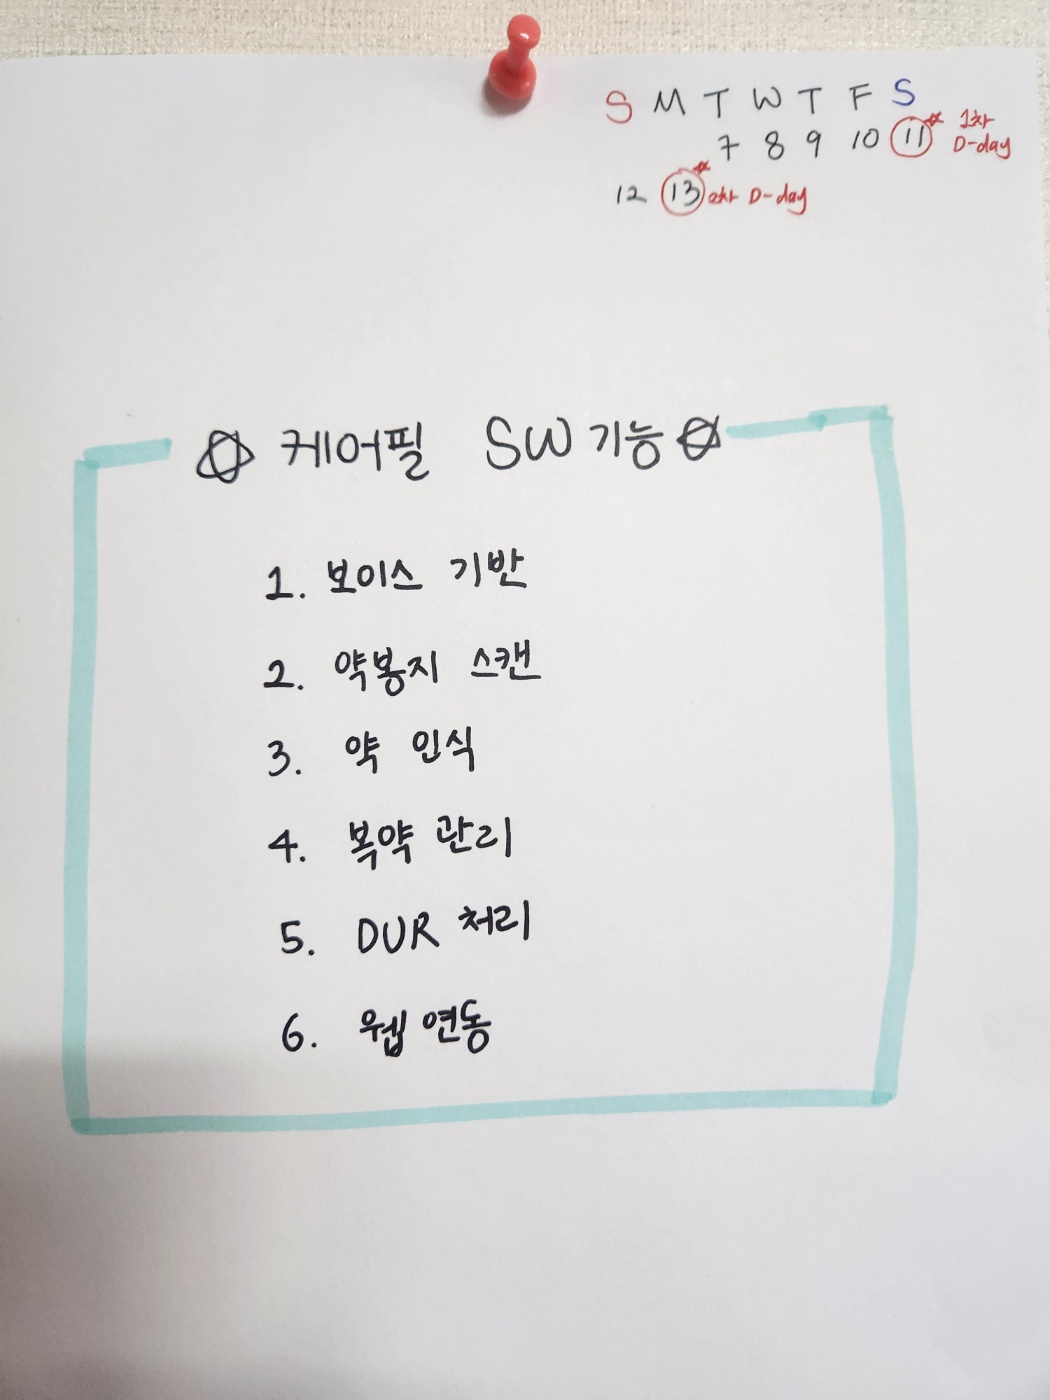 S M T W T F S
7 8 9 10 11 1차 D-day
12 13 2차 D-day
케어필 SW 기능
1. 보이스 기반
2. 약봉지 스캔
3. 약 인식
4. 복약 관리
5. DUR 처리
6. 웹 연동